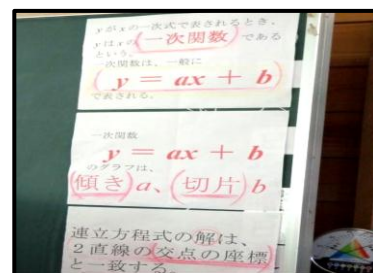 yがxの一次式で表されるとき、
yはxの一次関数である
という。
一次関数は、一般に
y = ax + b
で表される。
一次関数
y = ax + b
のグラフは、
傾きa、切片b
連立方程式の解は、
2直線の交点の座標
と一致する。